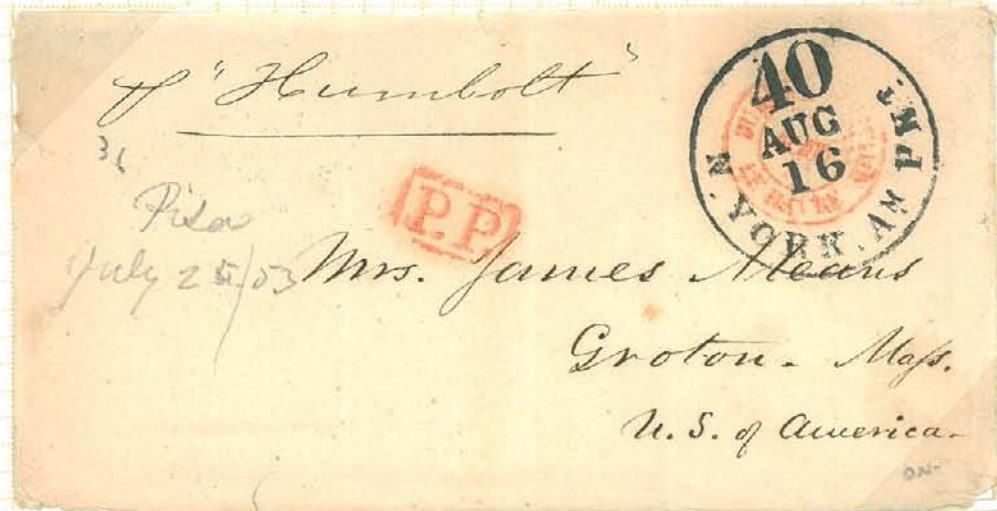 pr "Humbolt"
40
AUG
16
N. YORK. AM PKT.
LE HAVRE
36
Pisa
July 25/53
P.P
Mrs. James Means
Groton. Mass.
U. S. of America.
ON-